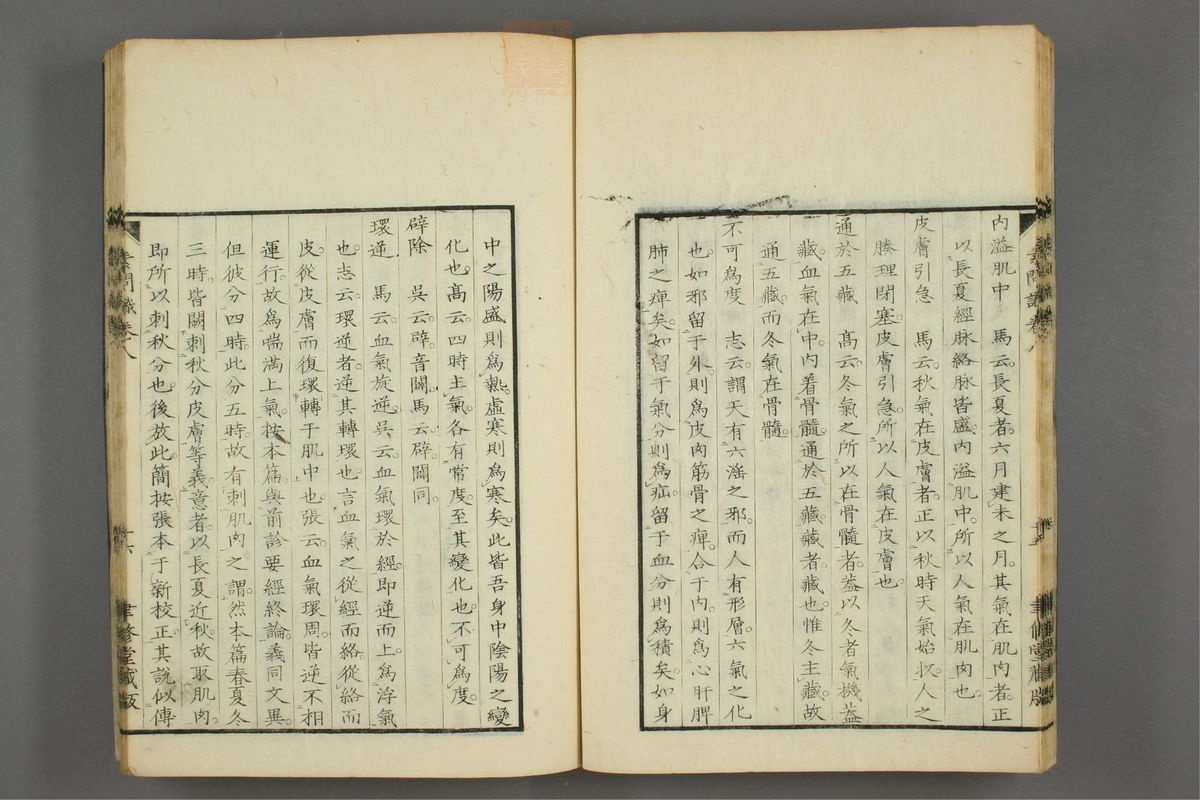 內溢肌中　馬云長夏者六月建未之月其氣在肌肉者正
以長夏經脉絡脉皆盛內溢肌中所以人氣在肌肉也
皮膚引急　馬云秋氣在皮膚者正以秋時天氣始收人之
腠理閉塞皮膚引急所以人氣在皮膚也
通於五藏　高云冬氣之所以在骨髓者蓋以冬者氣機蓋
藏血氣在中內着骨髓通於五藏藏者藏也惟冬主藏故
通五藏而冬氣在骨髓
不可爲度　志云謂天有六淫之邪而人有形層六氣之化
也如邪留于外則爲皮肉筋骨之痺合于內則爲心肝脾
肺之痺矣如留于氣分則爲疝留于血分則爲積矣如身
素問識 卷八
廿五
聿修堂藏版
中之陽盛則爲熱虛寒則爲寒矣此皆吾身中陰陽之變
化也高云四時主氣各有常度至其變化也不可爲度
辟除　吳云辟音闢馬云辟闢同
環逆　馬云血氣旋逆吳云血氣環於經即逆而上爲浮氣
也志云環逆者逆其轉環也言血氣之從經而絡從絡而
皮從皮膚而復環轉于肌中也張云血氣環周皆逆不相
運行故爲喘滿上氣按本篇與前診要經終論義同文異
但彼分四時此分五時故有刺肌肉之謂然本篇春夏冬
三時皆闕刺秋分皮膚等義意者以長夏近秋故取肌肉
即所以刺秋分也後放此簡按張本于新校正其說似傅
素問識 卷八
聿修堂藏版